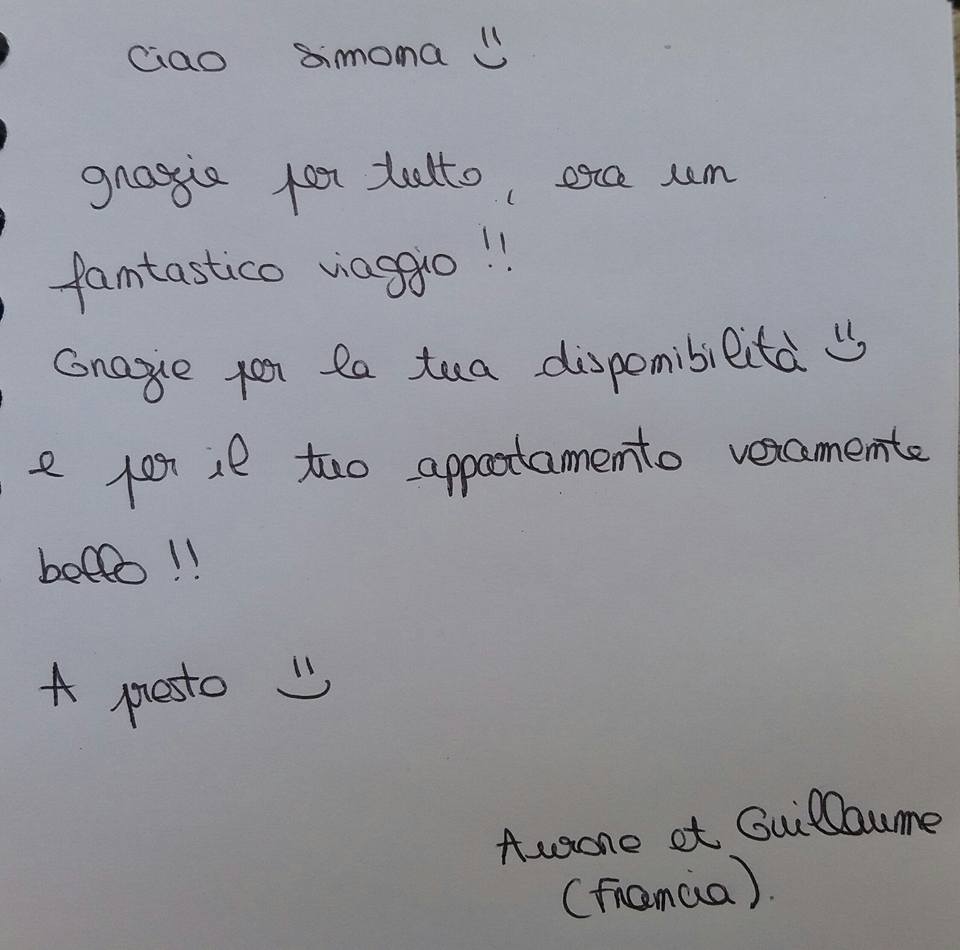 Ciao Simona
grazie per tutto, era un
fantastico viaggio !!
Grazie per la tua disponibilità
e per il tuo appartamento veramente
bello !!
A presto
Aurore et Guillaume
(Francia).